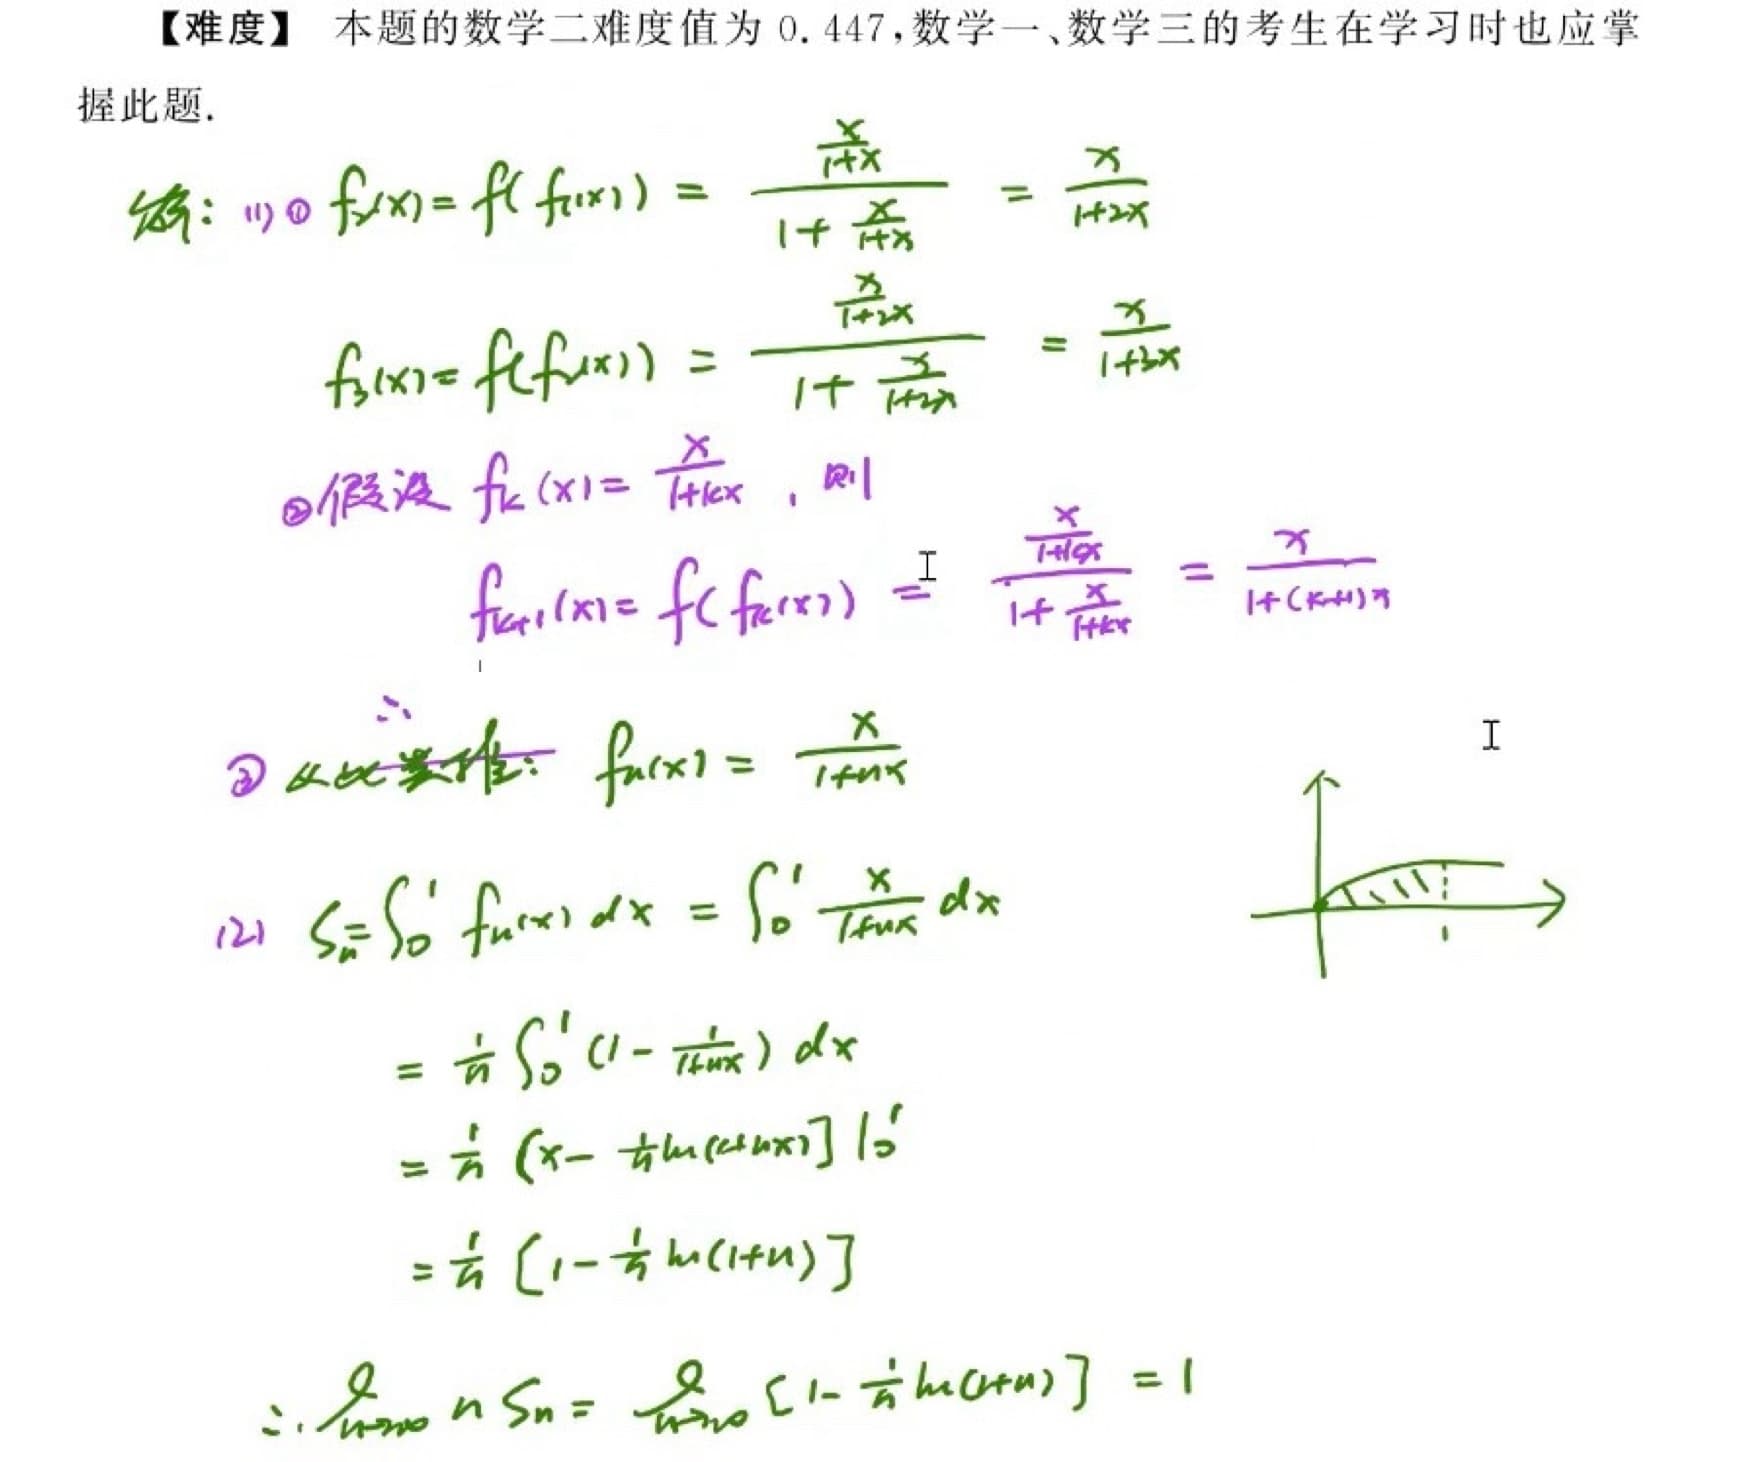 【难度】 本题的数学二难度值为 0.447,数学一、数学三的考生在学习时也应掌
握此题.
解: (1) ① f₂(x) = f(f₁(x)) = (x/(1+x))/(1 + x/(1+x)) = x/(1+2x)
f₃(x) = f(f₂(x)) = (x/(1+2x))/(1 + x/(1+2x)) = x/(1+3x)
② 假设 fₖ(x) = x/(1+kx) , 则
fₖ₊₁(x) = f(fₖ(x)) = (x/(1+kx))/(1 + x/(1+kx)) = x/(1+(k+1)x)
∴
③ fₙ(x) = x/(1+nx)
(2) Sₙ = ∫₀¹ fₙ(x) dx = ∫₀¹ x/(1+nx) dx
1
= 1/n ∫₀¹ (1 - 1/(1+nx)) dx
= 1/n [x - 1/n ln(1+nx)] |₀¹
= 1/n [1 - 1/n ln(1+n)]
∴ lim n→∞ n Sₙ = lim n→∞ [1 - 1/n ln(1+n)] = 1